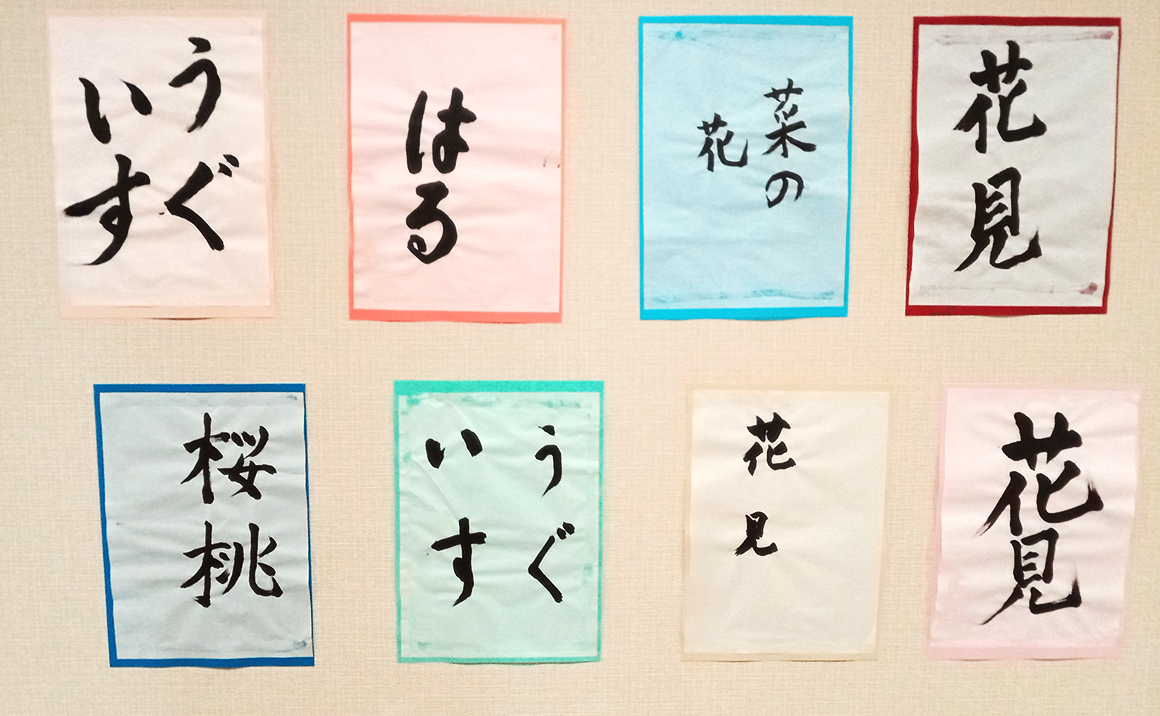 うぐ
いす
はる
菜の
花
花見
桜桃
うぐ
いす
花見
花見